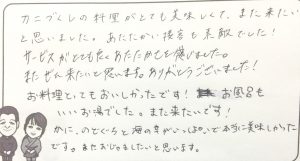 カニづくしの料理がとても美味しくて、また来たい
と思いました。あたたかい接客も素敵でした！
サービスがとても良くあたたかさを感じました。
またぜひ来たいと思います。ありがとうございました！
お料理とってもおいしかったです！ お風呂も
いいお湯でした。また来たいです！
かに、のどぐろと海の幸がいっぱいで本当に美味しかった
です。またおじゃましたいと思います。